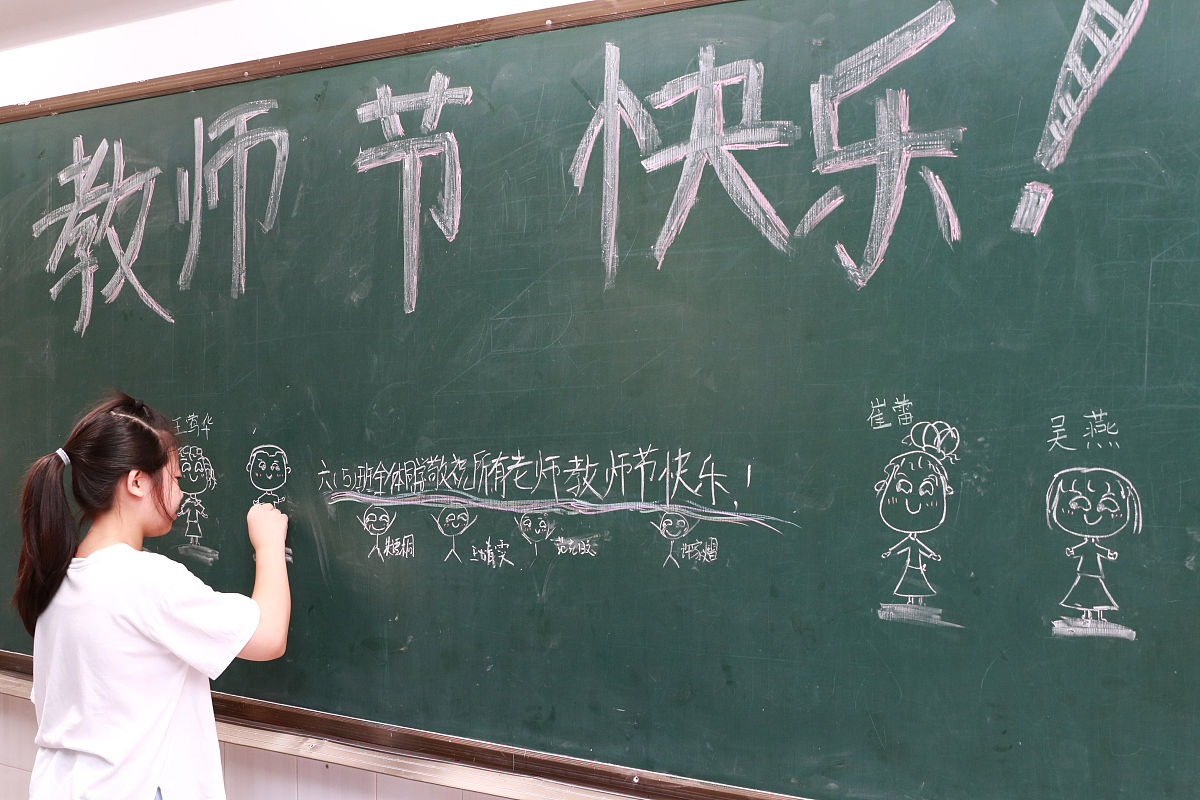 教师节快乐!
王莺华
崔蕾
吴燕
六(5)班全体同学敬祝所有老师教师节快乐!